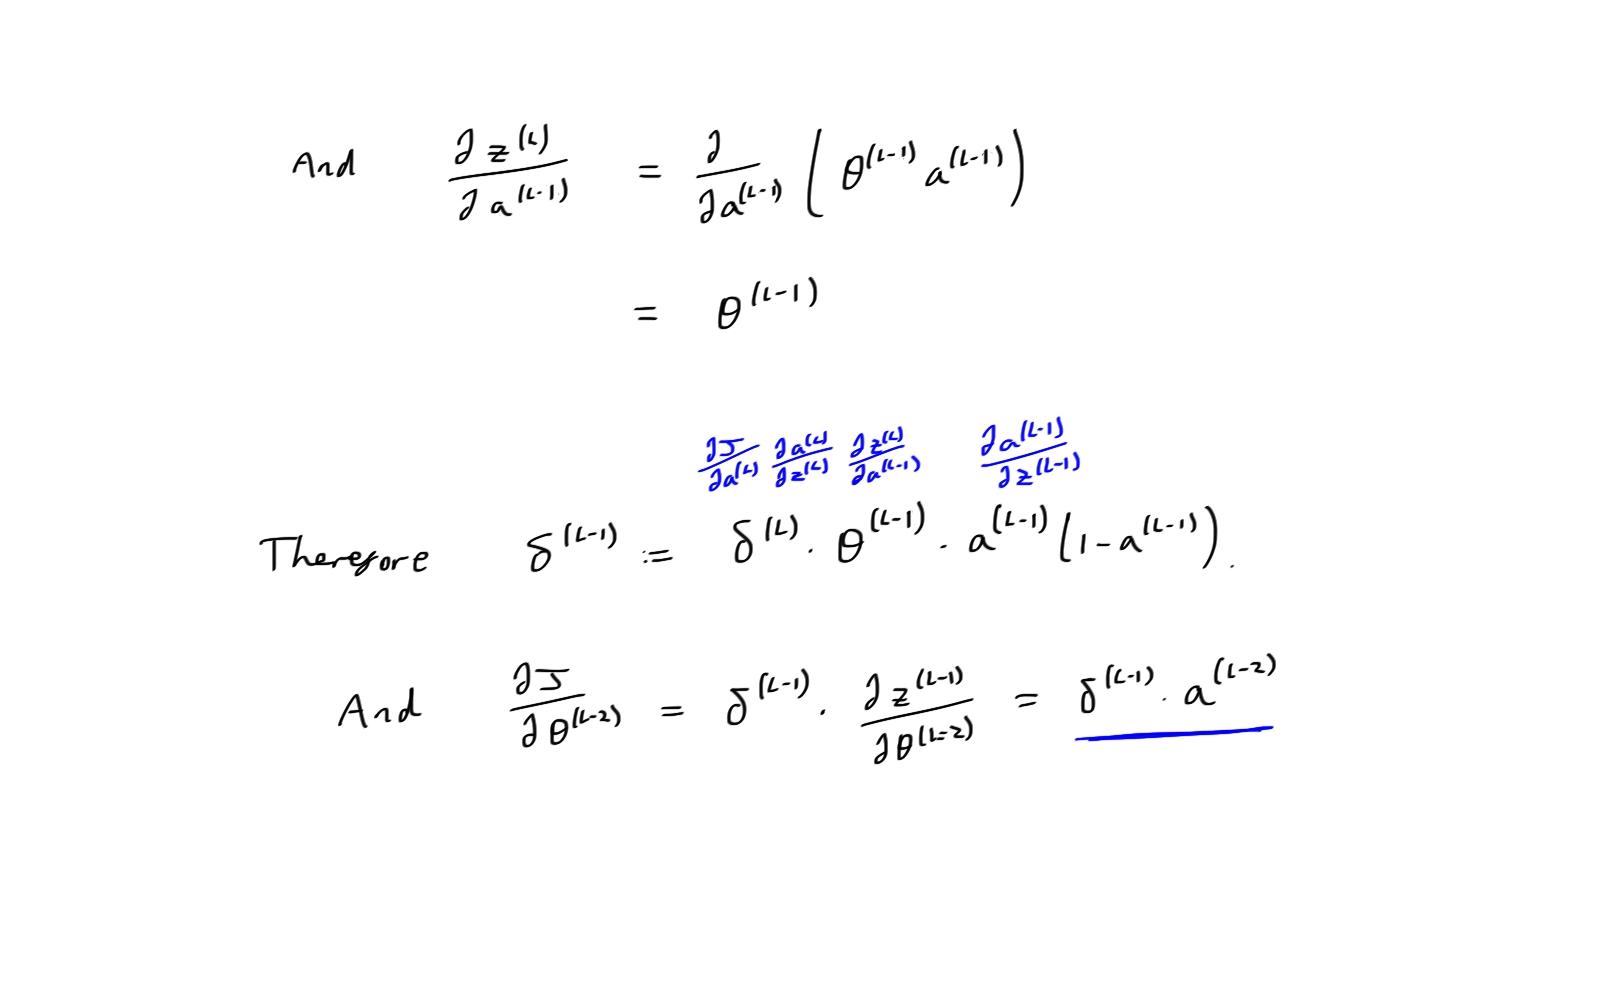 And ∂z^(L)/∂a^(L-1) = ∂/∂a^(L-1) (θ^(L-1) a^(L-1))
= θ^(L-1)
∂J/∂a^(L) ∂a^(L)/∂z^(L) ∂z^(L)/∂a^(L-1) ∂a^(L-1)/∂z^(L-1)
Therefore δ^(L-1) := δ^(L) · θ^(L-1) · a^(L-1) (1-a^(L-1)).
And ∂J/∂θ^(L-2) = δ^(L-1) · ∂z^(L-1)/∂θ^(L-2) = δ^(L-1) · a^(L-2)